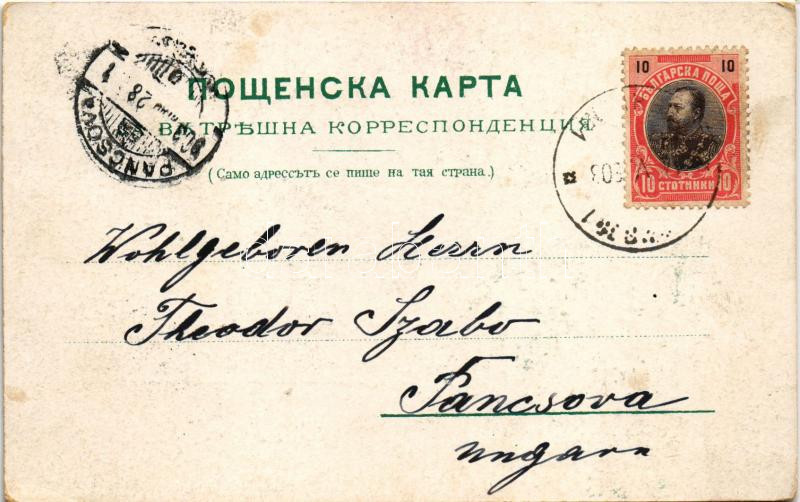 ПОЩЕНСКА КАРТА
ВѪТРѢШНА КОРРЕСПОНДЕНЦИЯ
(Само адрессътъ се пише на тая страна.)
10 10
БЪЛГАРСКА ПОЩА
10 СТОТИНКИ 10
PANCSOVA
903
28
Wohlgeboren Herrn
Theodor Szabo
Pancsova
Ungarn